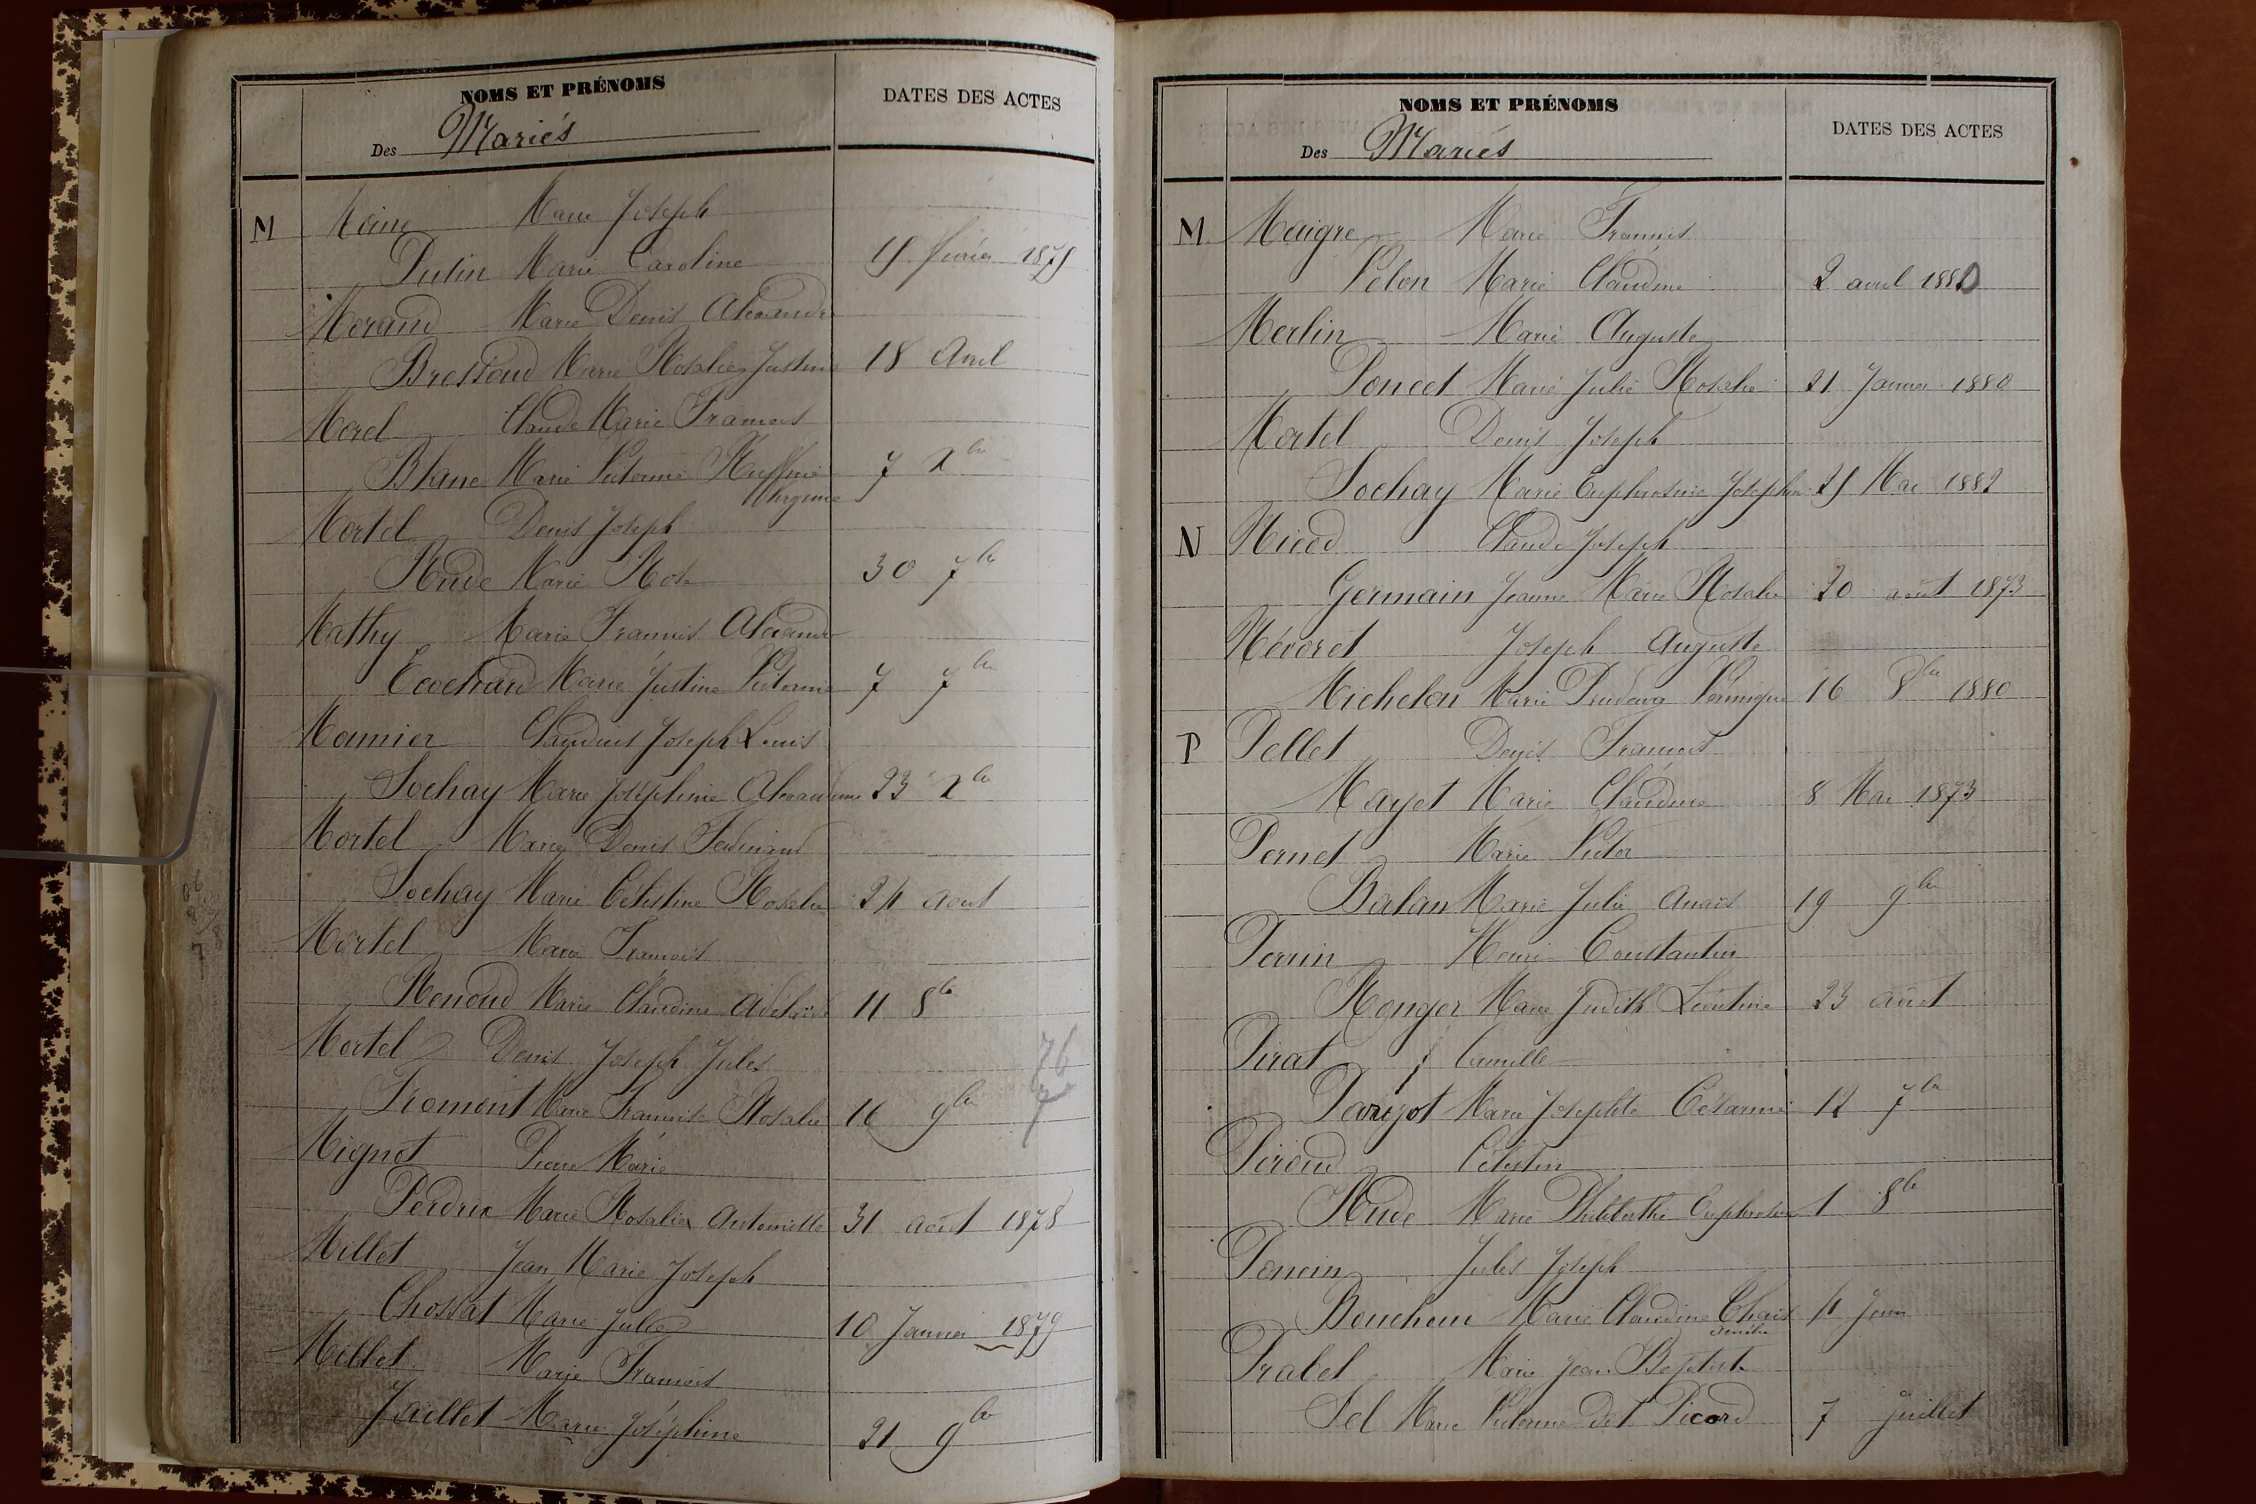 NOMS ET PRÉNOMS
DATES DES ACTES
Des Mariés
M Moine Marie Joseph
Putin Marie Caroline 15 février 1875
Morand Marie Denis Alexandre
Bressoud Marie Rosalie Justine 18 Avril
Morel Claude Marie François
Blanc Marie Victorine 7 Xbre
Mortel Denis Joseph
Rude Marie Rose 30 7bre
Mathy Marie François Alexandre
Ecochard Marie Justine Victorine 7 7bre
Monnier Claudius Joseph Louis
Sochay Marie Joséphine Alexandrine 23 Xbre
Mortel Marie Denis Ferdinand
Sochay Marie Célestine Rosalie 24 aout
Mortel Marie François
Renoud Marie Claudine Adelaïde 11 8bre
Mortel Denis Joseph Jules 76
Froment Marie Françoise Rosalie 16 9bre 7
Mignot Pierre Marie
Perdrix Marie Rosalie Antoinette 31 août 1878
Millet Jean Marie Joseph
Chossat Marie Julie 10 Janvier 1879
Millet Marie François
Jaillet Marie Joséphine 21 9bre
NOMS ET PRÉNOMS
DATES DES ACTES
Des Mariés
M Maigre Marie François
Pelon Marie Claudine 2 avril 1880
Merlin Marie Auguste
Poncet Marie Julie Rosalie 21 Janvier 1880
Mortel Denis Joseph
Sochay Marie Euphrosine Joséphine 25 Mai 1882
N Nicod Claude Joseph
Germain Jeanne Marie Rosalie 20 août 1873
Névoret Joseph Auguste
Michelon Marie Véronique 16 8bre 1880
P Pellet Denis François
Mayet Marie Claudine 8 Mai 1873
Pernet Marie Victor
Balan Marie Julie Anaïs 19 9bre
Perrin Henri Constantin
Monger Marie Judith Léontine 23 août
Pirat Camille
Parizot Marie Josephte Césarine 12 7bre
Piroud Célestin
Rude Marie Philiberthe Euphrosine 1 8bre
Poncin Jules Joseph
Bouchoux Marie Claudine Juin
Prabel Marie Jean Baptiste
Sel Marie Victorine dit Picard 7 Juillet